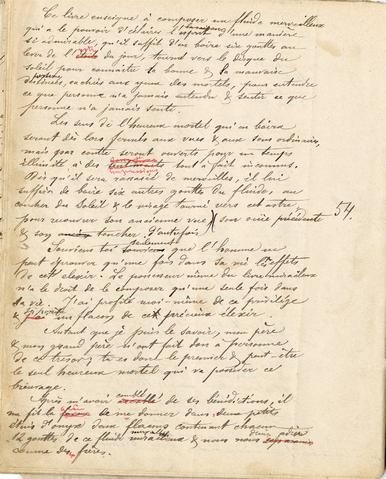 Ce livre enseigne à composer un fluide merveilleux
qui a le pouvoir d'éclairer l'esprit d'une manière
si admirable, qu'il suffit d'en boire six gouttes au
lever de l' du jour, tourné vers le disque du
soleil pour connaître sa bonne & sa mauvaise
destinées, cachés aux yeux des mortels, pour entendre
ce que personne n'a jamais entendu & sentir ce que
personne n'a jamais senti.
Les sens de l'heureux mortel qui en boira
seront dès lors fermés aux vues & aux sons ordinaires,
mais par contre seront ouverts pour un temps
illimité à des impressions tout à fait inconnus.
Dès qu'il sera rassasié de merveilles, il lui
suffira de boire six autres gouttes du fluide, au
coucher du Soleil & le visage tourné vers cet astre,
pour recouvrer son ancienne vue, son ouïe précédente 54.
& son ancien toucher d'autrefois.
seulement
Souviens toi que l'homme ne
peut éprouver qu'une fois dans sa vie l'effets
de cet élexir. Le possesseur même du livre miraculeux
n'a le droit de le composer qu'une seule fois dans
sa vie. J'ai profité moi-même de ce privilège
un flacons de ce précieux élexir.
Autant que je puis le savoir, mon père
& mon grand père n'ont fait don à personne
de ce trésor; tu es donc le premier & peut-être
le seul heureux mortel qui va posséder ce
breuvage.
Après m'avoir comblé de ses bénédictions, il
me fit la de me donner dans deux petits
étuis d'onyx deux flacons contenant chacun
12 gouttes de ce fluide & nous nous
comme des frères.